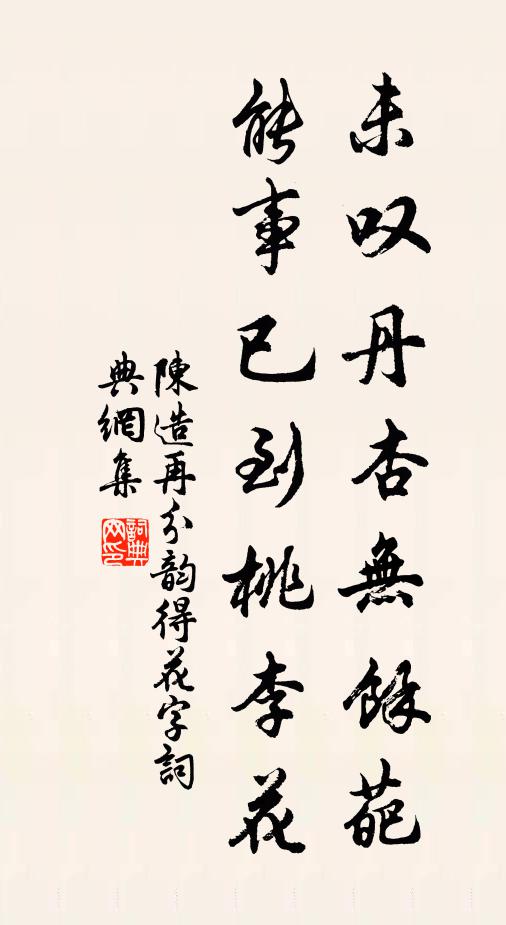 未叹丹杏無餘葩
能事已到桃李花
陳造再分韵得花字詞
典網集
詞典网印